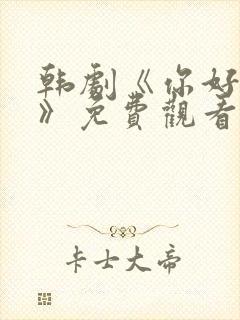 韩劇《你好
》免費觀看
卡士大帝